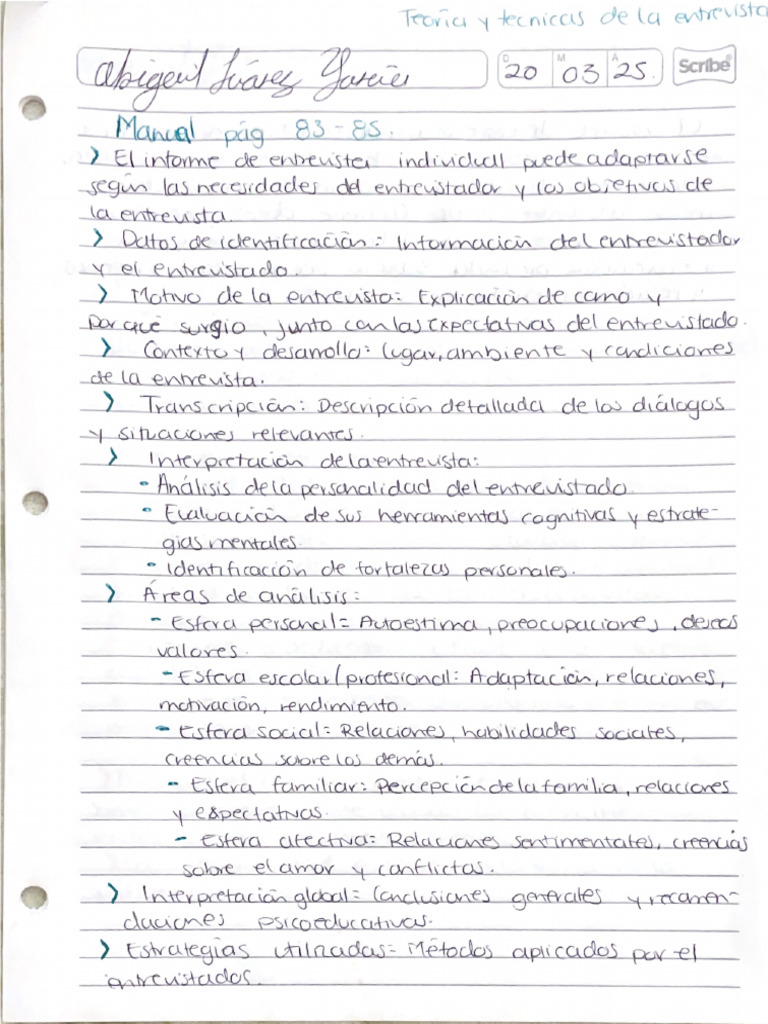 Teoría y tecnicas de la entrevista
Abigail Juárez García
D 20 M 03 A 25.
Scribe
Manual pág 83-85.
> El informe de entrevista individual puede adaptarse
según las necesidades del entrevistador y los objetivos de
la entrevista.
> Datos de identificación: Información del entrevistador
y el entrevistado.
> Motivo de la entrevista: Explicación de como y
por qué surgio, junto con las expectativas del entrevistado.
> Contexto y desarrollo: lugar, ambiente y condiciones
de la entrevista.
> Transcripción: Descripción detallada de los diálogos
y situaciones relevantes.
> Interpretación de la entrevista:
- Análisis de la personalidad del entrevistado.
- Evaluación de sus herramientas cognitivas y estrate-
gias mentales.
- Identificación de fortalezas personales.
> Áreas de análisis:
- Esfera personal= Autoestima, preocupaciones, deseos
valores.
- Esfera escolar/profesional: Adaptación, relaciones,
motivación, rendimiento.
- Esfera social= Relaciones, habilidades sociales,
creencias sobre los demás.
- Esfera familiar: Percepción de la familia, relaciones
y expectativas.
- Esfera afectiva: Relaciones sentimentales, creencias
sobre el amor y conflictos.
> Interpretación global= Conclusiones generales y recomen-
daciones psicoeducativas.
> Estrategias utilizadas= Métodos aplicados por el
entrevistados.